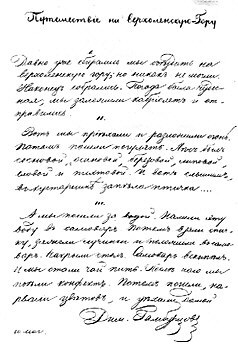 Путешествіе на верхоленскую Гору
I.
Давно уже собирались мы сходить на
верхоленскую гору; но никакъ не могли.
Наконецъ собрались. Погода была
мы заложили и от-
правились
II.
Вотъ мы пріѣхали и разложили огонь.
Потомъ пошли погулять. Лѣсъ былъ
сосновый, осиновый, березовый, липовый
еловый и пихтовый. И вотъ слышимъ
въ кустарникѣ запѣла птичка....
III.
А мы пошли за водой. Налили эту
воду въ самоваръ. Потомъ взяли спич-
ку, зажгли лучинки и положили въ само-
варъ. Накрыли столъ. Самоваръ вскипѣлъ.
И мы стали чай пить. Послѣ чаю мы
поѣли конфектъ. Потомъ пошли, на-
рвали цвѣтовъ, и уѣхали домой